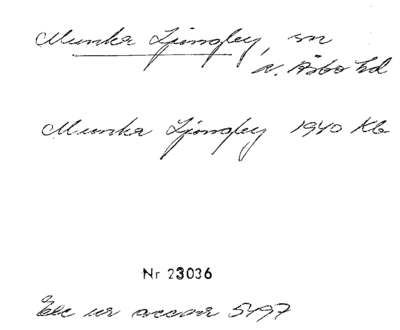 Munka Ljungby, sn
N. Åsbo hd
Munka Ljungby 1940 Kb
Nr 23036
Exc ur accessr 5497